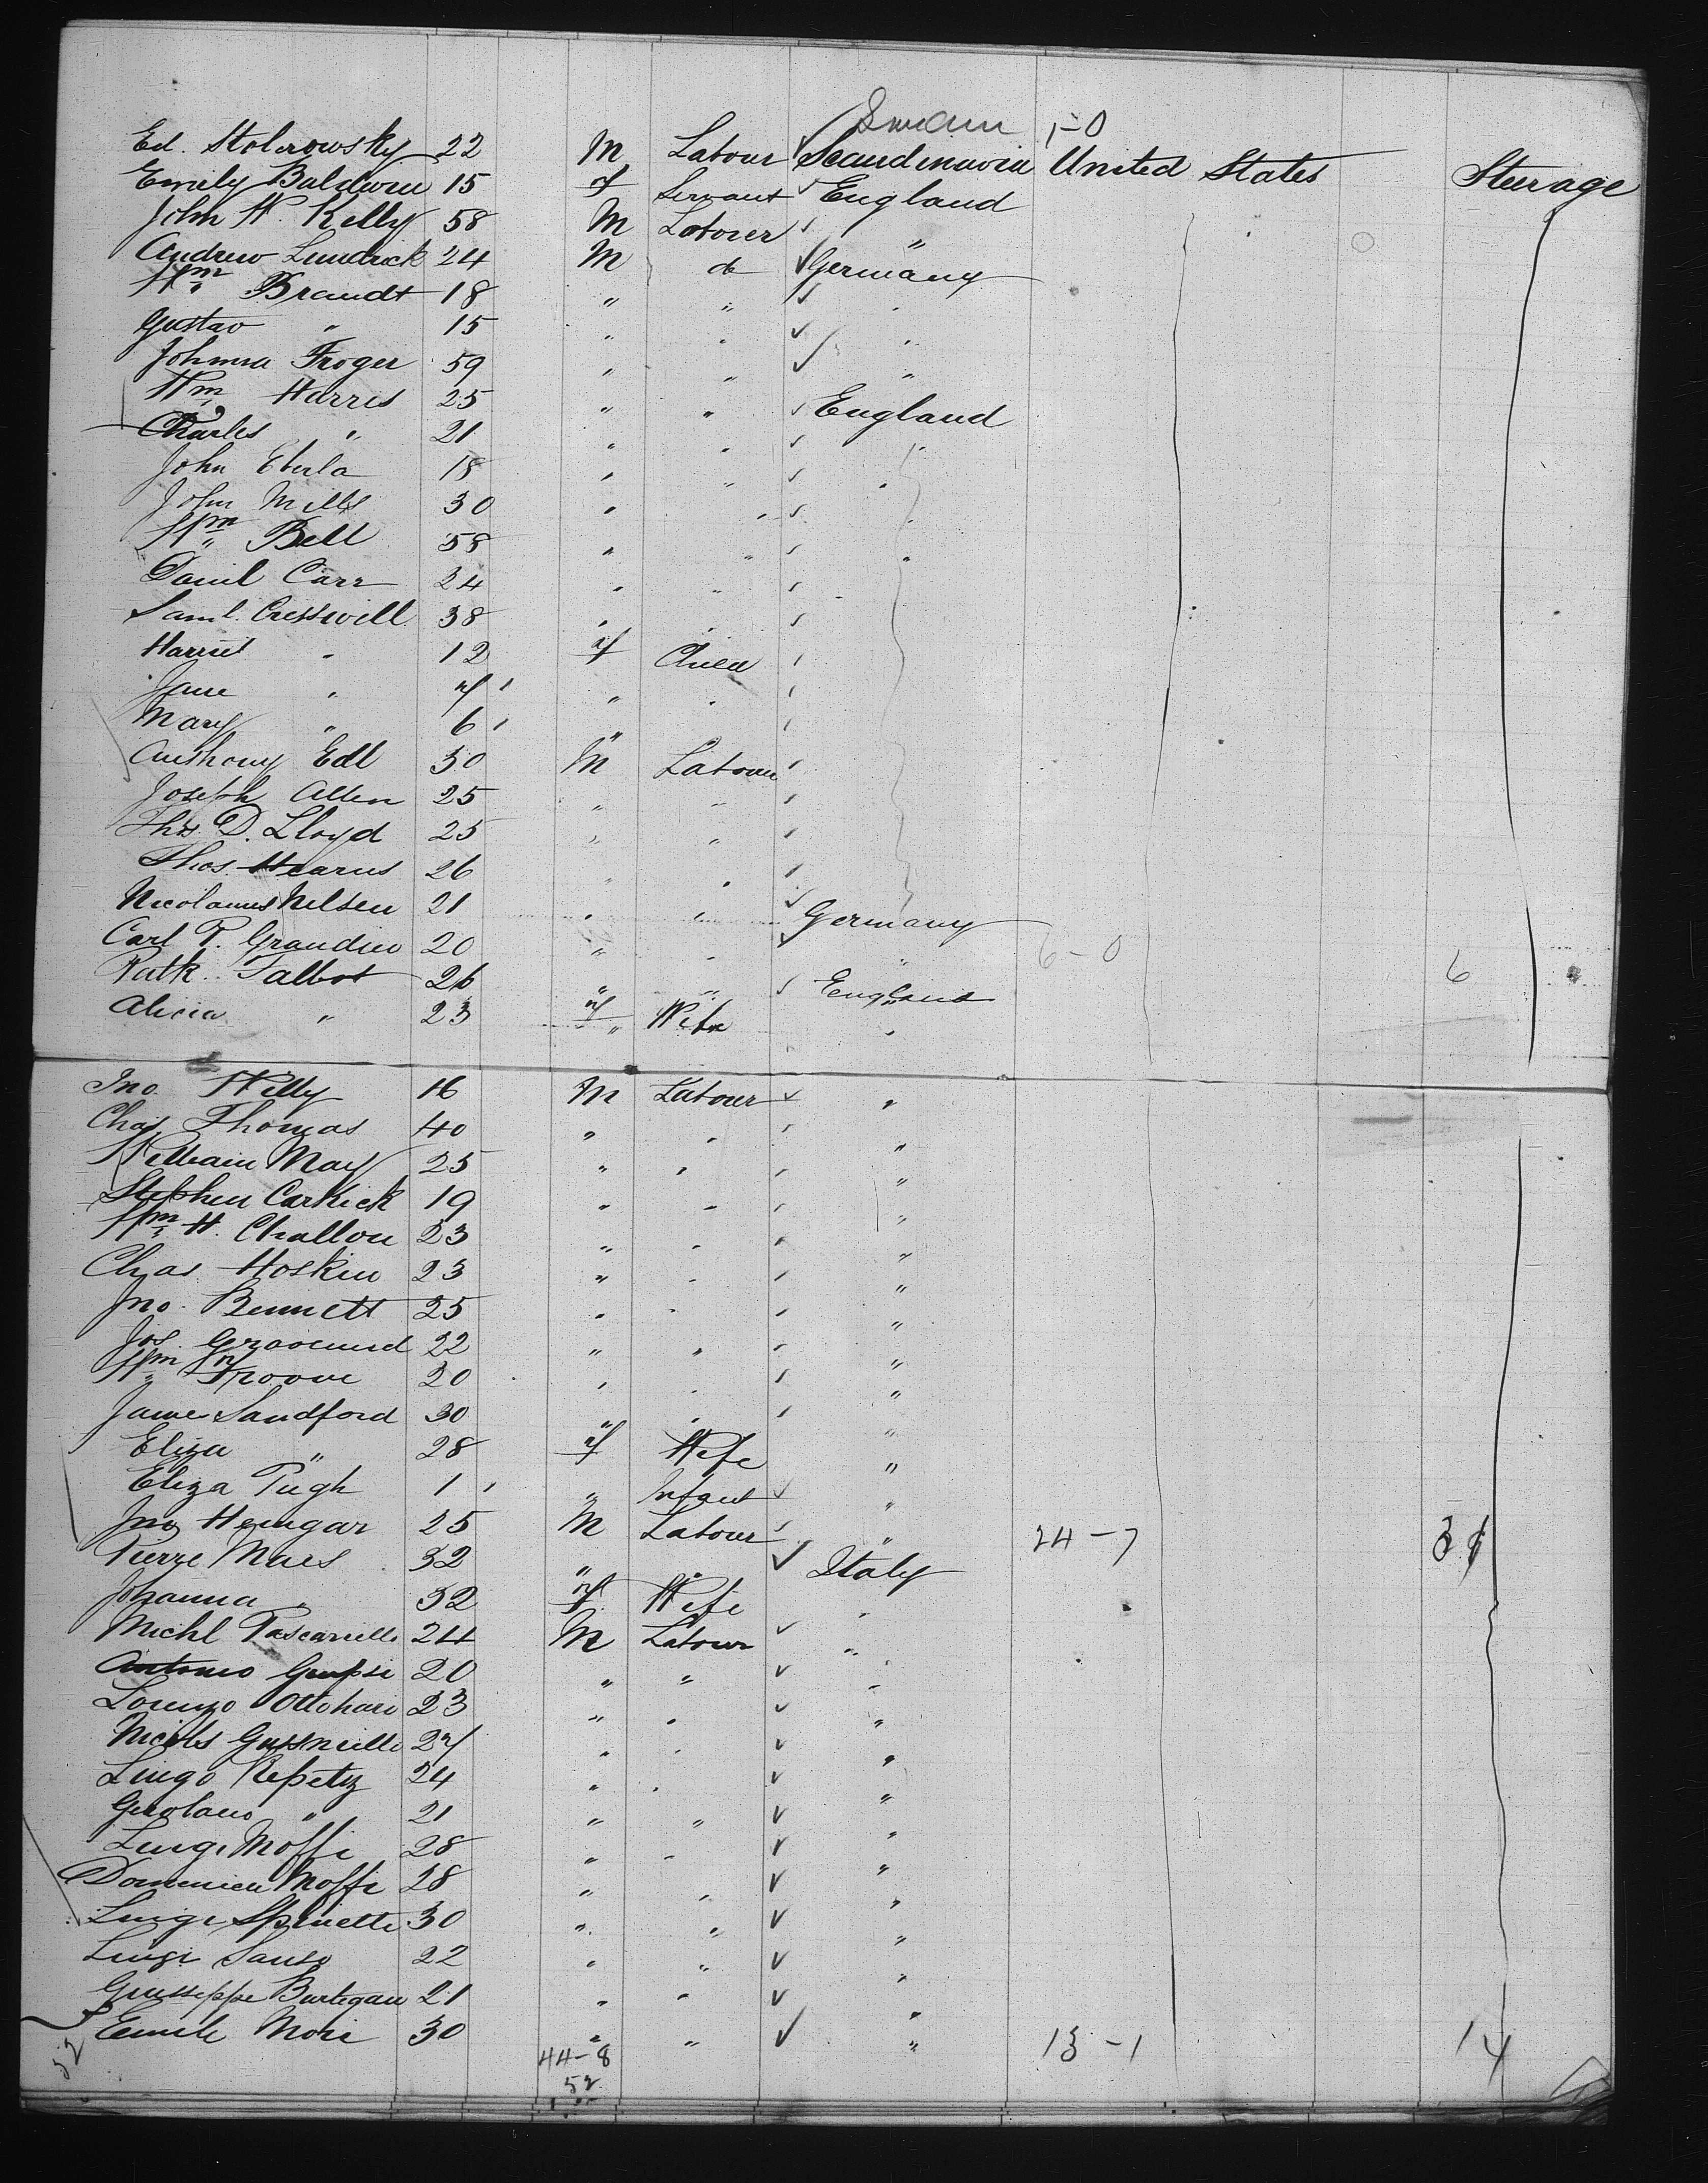 Sweden 1-0
Ed. Stolarowsky 22 M Labour ✓ Scandinavia United States Steerage
Emily Baldwin 15 f Servant ✓ England
John W. Kelly 58 M Labourer ✓ "
Andrew Lundrick 24 M do ✓ Germany
Wm Brandt 18 " " ✓ "
Gustav " 15 " " ✓ "
Johnna Froger 59 " " ✓ "
Wm Harris 25 " " ✓ England
Charles " 21 " " ✓ "
John Eberla 18 " " ✓ "
John Mills 30 " " ✓ "
Wm Bell 58 " " ✓ "
Daniel Carr 24 " " ✓ "
Saml. Cresswell 38 " " ✓
Harriet " 12 f Child ✓
Jane " 7 " " ✓
Mary " 6 " ✓
Anthony Edl 30 M Labour ✓
Joseph Allen 25 " " ✓
Ths. D. Lloyd 25 " " ✓
Thos. Hearns 26 " " ✓
Nicolaus Nilsen 21 " " ✓ Germany
Carl P. Grandin 20 " " ✓ " 6-0 6
Patk. Talbot 26 " " ✓ England
Alicia " 23 f Wife "
Jno. Welly 16 M Labourer ✓ "
Chas. Thomas 40 " " ✓ "
William May 25 " " ✓ "
Stephen Carkick 19 " " ✓ "
Wm H. Challon 23 " " ✓ "
Chas. Hoskin 23 " " ✓ "
Jno. Bennett 25 " " ✓ "
Jos. 22 " " ✓ "
Wm 20 " " ✓ "
James Sandford 30 " " ✓ "
Eliza " 28 f Wife "
Eliza Pugh 1 " Infant ✓ "
Jno Hemgar 25 M Labour ✓ " 24-7 31
Pierre Maes 32 " " ✓ Italy
Johanna " 32 f Wife "
Michl Pascarielli 24 M Labour ✓ "
Antonio 20 " " ✓ "
Lorenzo Ottohari 23 " " ✓ "
27 " " ✓ "
Luigo Repetz 24 " " ✓ "
Girolano " 21 " " ✓ "
Luigi Moffi 28 " " ✓ "
Domenica Moffi 28 " " ✓ "
Luigi Spinetti 30 " " ✓ "
Luigi Sanso 22 " " ✓ "
Giusseppe Burtegau 21 " " ✓ "
Emile Mori 30 " " ✓ " 13-1 14
52
44-8
52